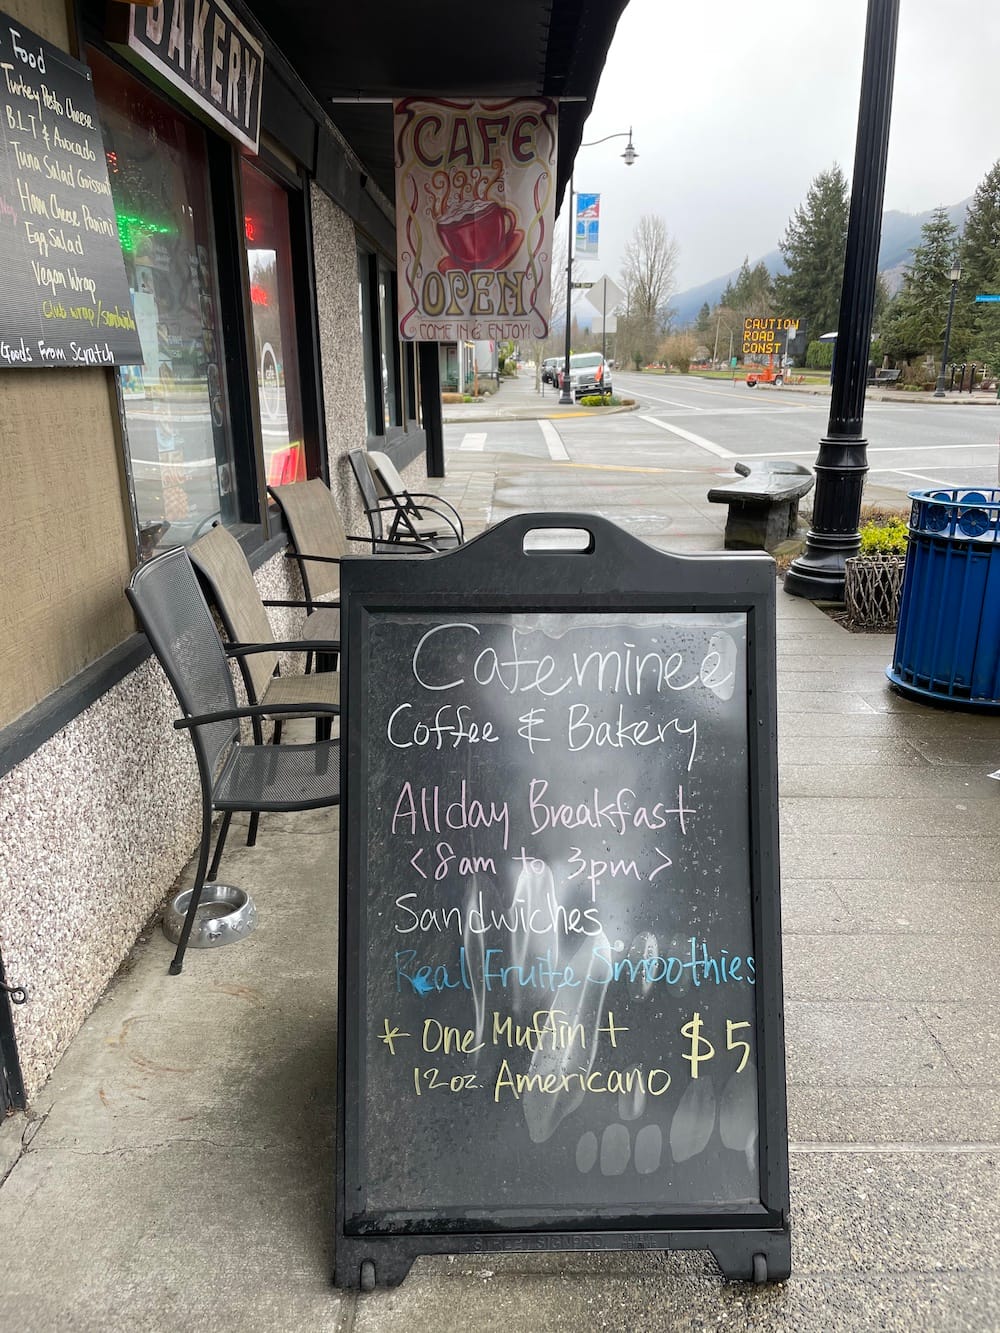 BAKERY
Food
Turkey Pesto Cheese
B.L.T & Avocado
Tuna Salad Croissant
Ham Cheese Panini
Egg Salad
Vegan Wrap
Club wrap/sandwich
Goods From Scratch
CAFE
OPEN
COME IN & ENJOY!
CAUTION
ROAD
CONST
Cafeminee
Coffee & Bakery
All day Breakfast
<8am to 3pm>
Sandwiches
Real Fruite Smoothies
* One Muffin + $5
12oz. Americano